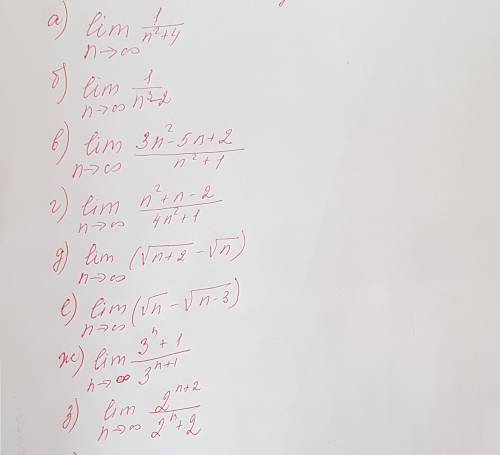 а) lim n→∞ 1/(n²+4)
б) lim n→∞ 1/(n²-2)
в) lim n→∞ (3n²-5n+2)/(n²+1)
г) lim n→∞ (n²+n-2)/(4n²+1)
д) lim n→∞ (√(n+2) - √n)
е) lim n→∞ (√n - √(n-3))
ж) lim n→∞ (3ⁿ+1)/3ⁿ⁺¹
з) lim n→∞ 2ⁿ⁺²/(2ⁿ+2)